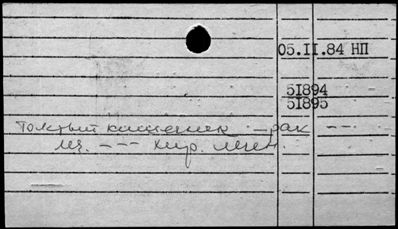 05.II.84 НП
51894
51895
толстый кишечник – рак – –
леч. – – – хир. лечен.